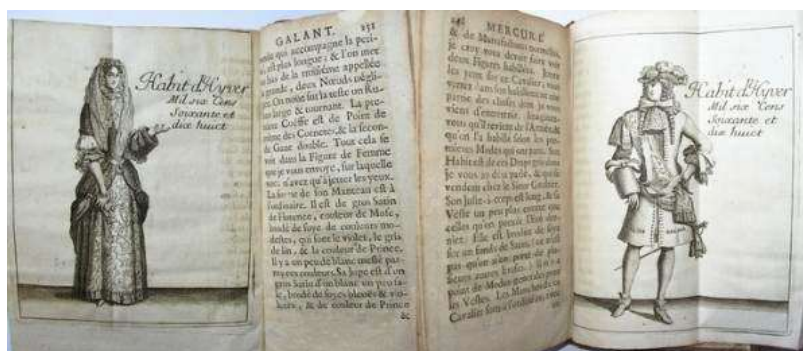 Habit d'Hyver
Mil six Cens
Soixante et
dix huict
GALANT. 251
qui accompagne la peti-
est plus longue; & l'on met
au bas de la troisième appellée
grande, deux Nœuds négli-
On noüe sur la teste un Ru-
large & tournant. La pre-
Coëffe est de Point de
même des Cornetes, & la secon-
de Gaze double. Tout cela se
voit dans la Figure de Femme
que je vous envoye, sur laquelle
vous n'avez qu'à jetter les yeux.
La forme de son Manteau est à
l'ordinaire. Il est de gros Satin
de Florence, couleur de Muse,
brodé de soye de couleurs mo-
destes, qui sont le violet, le gris
de lin, & la couleur de Prince.
Il y a un peu de blanc meslé par-
my ces couleurs. Sa Jupe est d'un
gros Satin d'un blanc un peu sa-
le, brodé de soyes bleuës & vio-
letes, & de couleur de Prince
&
MERCURE
& de Manufactures nouvelles,
je croy vous devoir faire voir
deux Figures habillées. Jettez
les yeux sur ce Cavalier, vous
verrez dans son habillement une
partie des choses dont je vous
viens d'entretenir. Imaginez-
vous qu'il revient de l'Armée, &
qu'on l'a habillé selon les pre-
mieres Modes qui ont paru. Son
Habit est de ces Draps gris dont
je vous ay déja parlé, & qui se
vendent chez le Sieur Gaultier.
Son Juste-à-corps est long, & sa
Veste un peu plus courte que
celles qu'on portoit l'Esté der-
nier. Elle est brodée de soye
sur un fonds de Satin,
plus qu'on n'en porte de plu-
sieurs autres Etofes. Il n'y a
point de Modes generales pour
les Vestes. Les Manches du
Cavalier sont à l'ordinaire,
Habit d'Hyver
Mil six Cens
Soixante et
dix huict